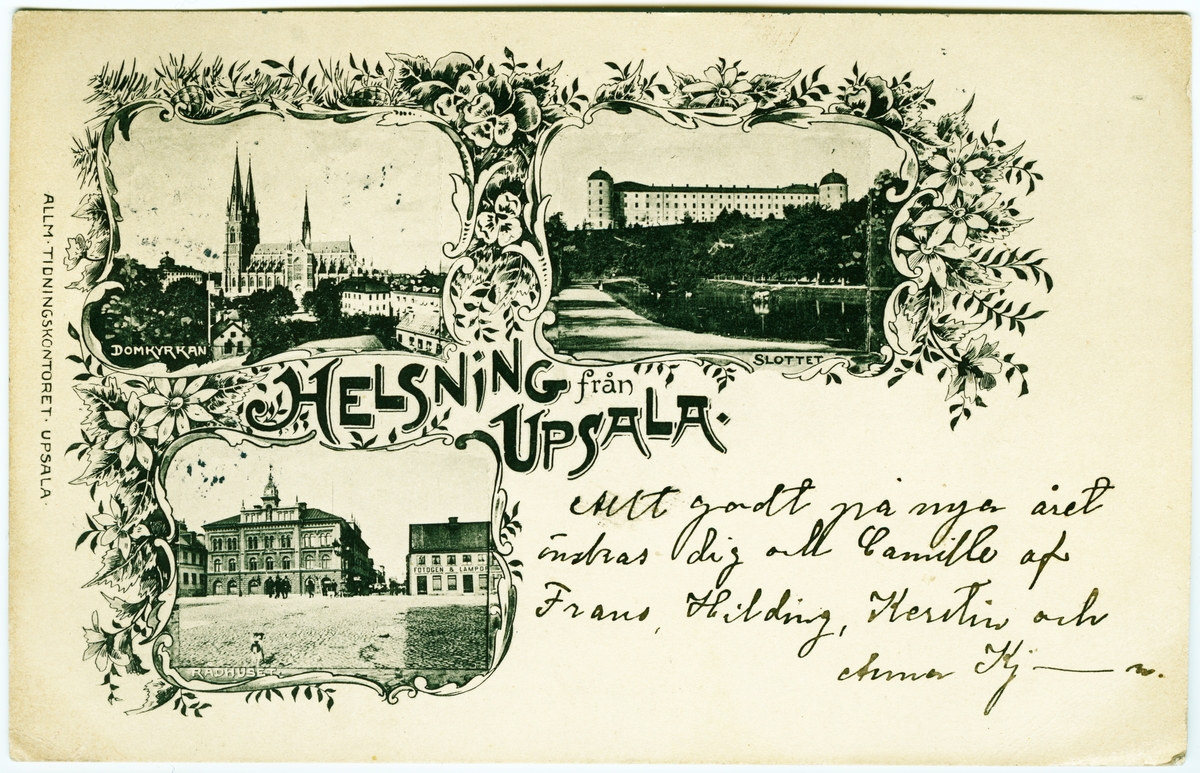 ALLM· TIDNINGSKONTORET· UPSALA·
DOMKYRKAN
SLOTTET
HELSNING från
UPSALA·
FOTOGEN & LAMPOR
RÅDHUSET.
Allt godt på nya året
önskas dig och Camille af
Frans, Hilding, Kerstin och
Anna Kj——n.